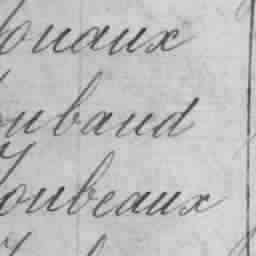 ouaux
oubaud
oubeaux